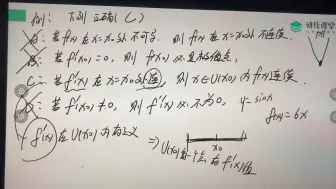 例: 下列正确( C )
A: 若f(x)在x=x₀处不可导, 则f(x)在x=x₀处不连续.
B: 若f'(x₀)=0, 则f(x)以x₀是极值点,
C: 若f'(x)在x=x₀处连续, 则x∈U(x₀)内f(x)连续.
D: 若f'(x₀)≠0, 则f'(x)必不为0, y=sinx
f'(x)在U(x₀)内有定义 ⇒ U(x₀)每一个点有f'(x)值
f(x)=6x
x₀
研线课堂